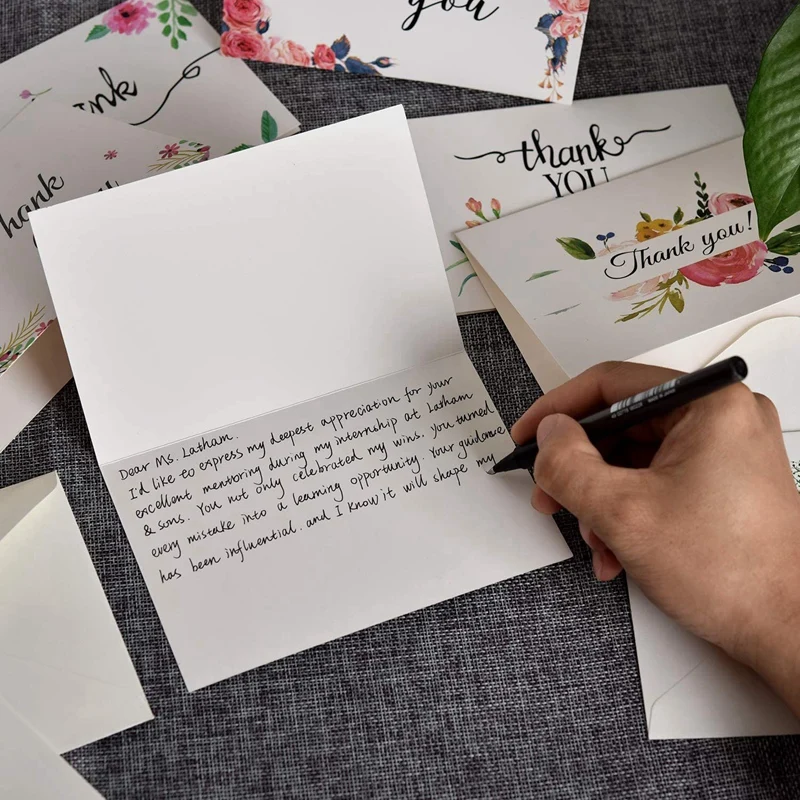 you
ink
hank
thank
YOU
Thank you!
Dear Ms. Latham.
I'd like to express my deepest appreciation for your
excellent mentoring during my internship at Latham
& sons. You not only celebrated my wins. you turned
every mistake into a learning opportunity. Your guidance
has been influential. and I know it will shape my